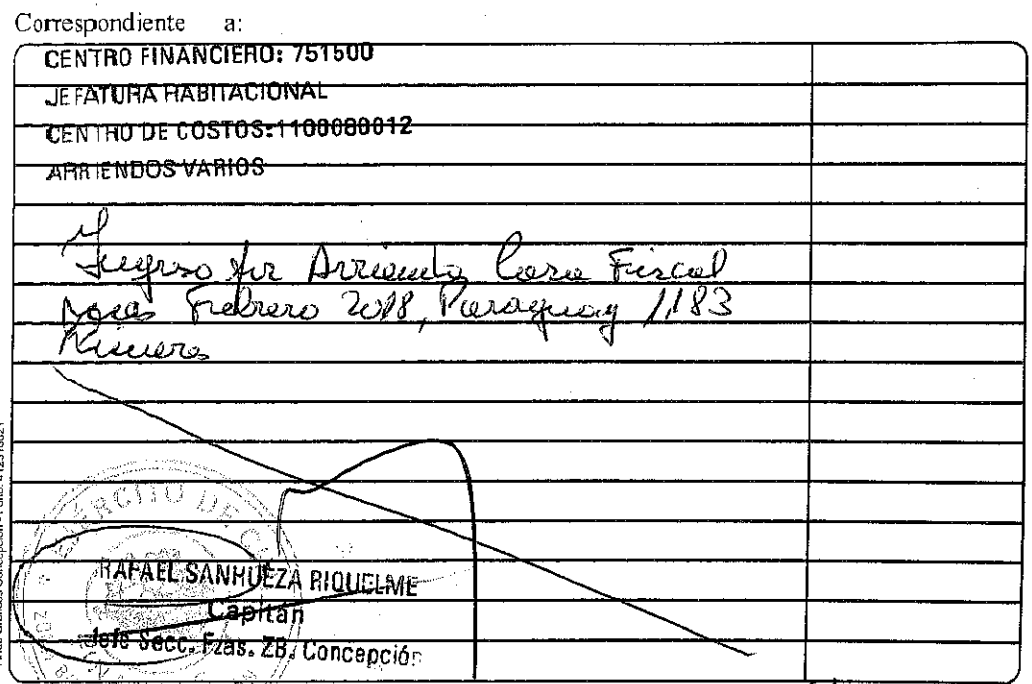 Correspondiente a:
CENTRO FINANCIERO: 751500
JEFATURA HABITACIONAL
CENTRO DE COSTOS: 1100080012
ARRIENDOS VARIOS
Ingreso por Arriendo Casa Fiscal
Febrero 2018, Paraguay 1183
EJERCITO DE
RAFAEL SANHUEZA RIQUELME
Capitán
Jefe Secc. Fzas. ZB. Concepción